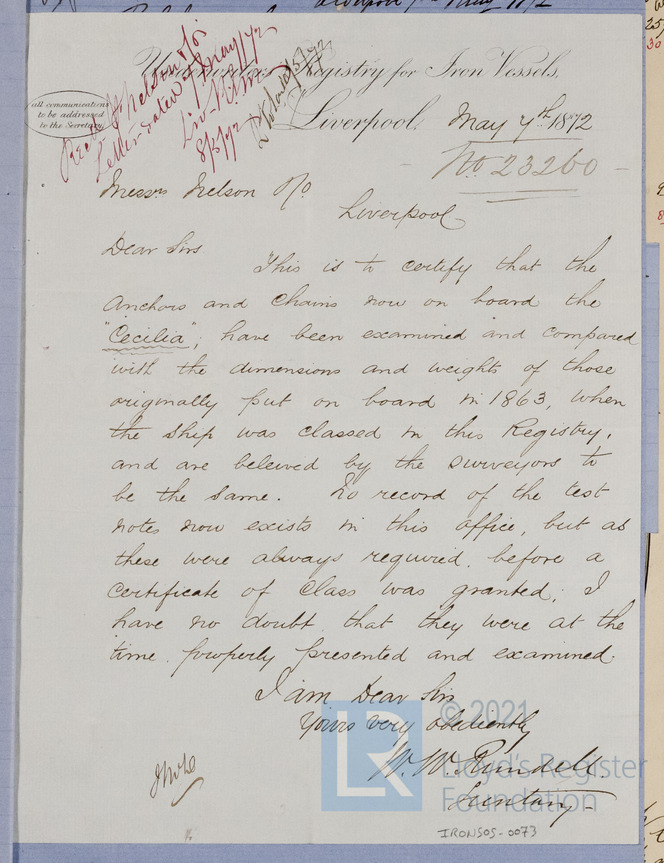 Underwriters Registry for Iron Vessels,
all communications
to be addressed
to the Secretary
Liverpool, May 7th 1872
No 23260
Letter dated 7 May/72
8/5/72
Messrs Nelson &Co
Liverpool
Dear Sirs
This is to certify that the
Anchors and Chains now on board the
"Cecilia", have been examined and compared
with the dimensions and weights of those
originally put on board in 1863, when
the ship was classed in this Registry,
and are beleived by the surveyors to
be the same. No record of the test
notes now exists in this office, but as
these were always required, before a
certificate of Class was granted; I
have no doubt that they were at the
time properly presented and examined.
I am Dear Sirs
Yours very obediently
W. W. Rundell
Secretary
© 2021
LR
Lloyd's Register
Foundation
IRONSOS-0073